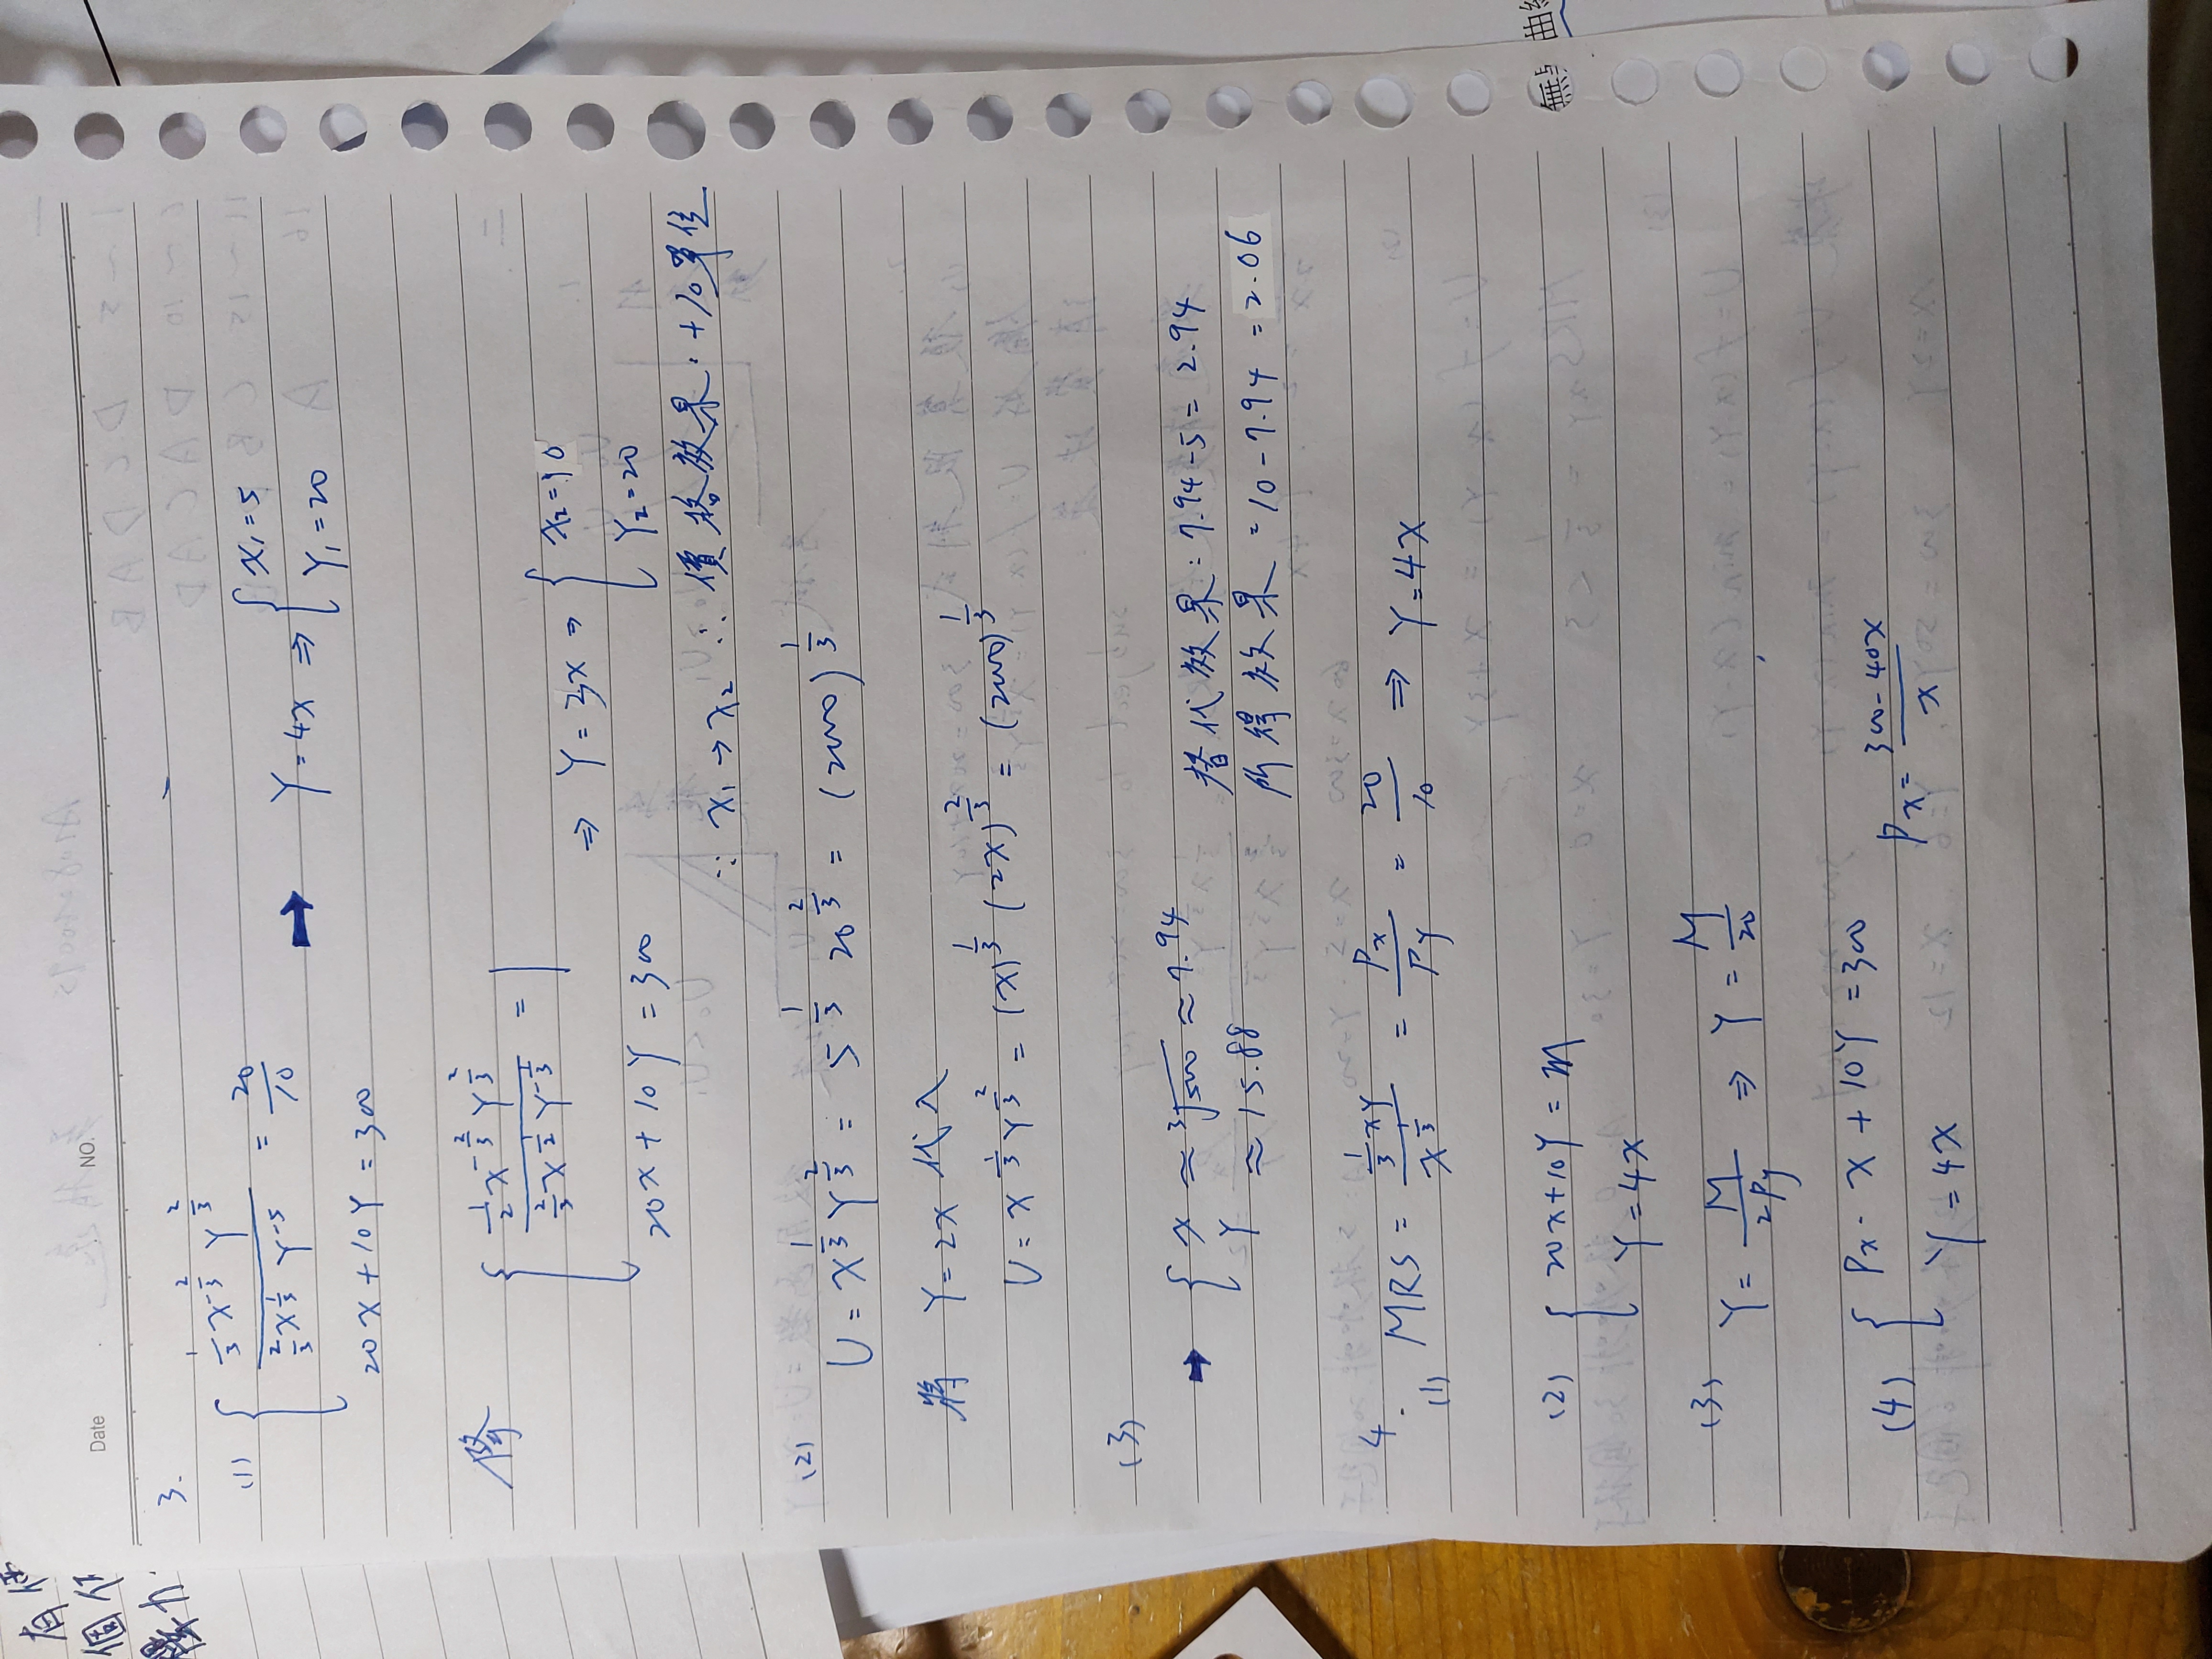 有
個
Date
NO.
3.
(1) { (1/3 x^(-2/3) Y^(2/3)) / (2/3 x^(1/3) Y^(-5)) = 20/10
20x + 10Y = 300
➡ Y = 4x ⇒ { x₁ = 5
Y₁ = 20
降 { (1/2 x^(-2/3) Y^(2/3)) / (2/3 x^(1/2) Y^(-1/3)) = 1
20x + 10Y = 300
⇒ Y = 3x ⇒ { x₂ = 10
Y₂ = 20
∵ x₁ → x₂ ∴ 價格效果: +10單位
(2)
U = x^(1/3) Y^(2/3) = 5^(1/3) 20^(2/3) = (2000)^(1/3)
將 Y = 2x 代入
U = x^(1/3) Y^(2/3) = (x)^(1/3) (2x)^(2/3) = (2000)^(1/3)
(3)
➡ { x ≈ ³√500 ≈ 7.94
Y ≈ 15.88
替代效果: 7.94 - 5 = 2.94
所得效果 = 10 - 7.94 = 2.06
4.
(1) MRS = (1/3 xy) / (x^(1/3)) = Px/Py = 20/10 ⇒ Y = 4x
(2) { 20x + 10Y = m
Y = 4x
(3) Y = M/2Py ⇒ Y = M/20
(4) { Px · x + 10Y = 300
Y = 4x
Px = (300 - 40x)/x
無
曲